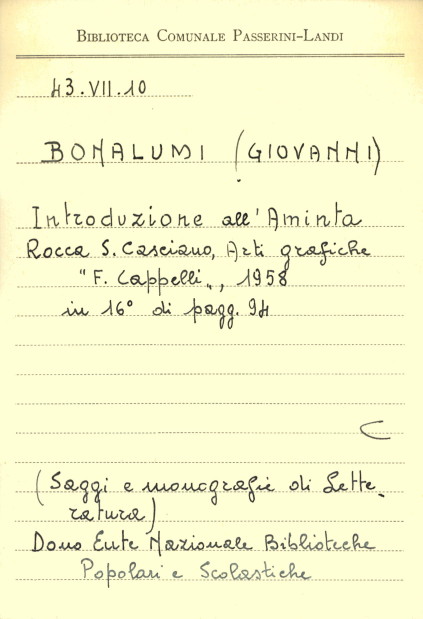 BIBLIOTECA COMUNALE PASSERINI-LANDI
43.VII.10
BONALUMI (GIOVANNI)
Introduzione all'Aminta
Rocca S. Casciano, Arti grafiche
"F. Cappelli", 1958
in 16° di pagg. 94
C
(Saggi e monografie di Lette-
ratura)
Dono Ente Nazionale Biblioteche
Popolari e Scolastiche